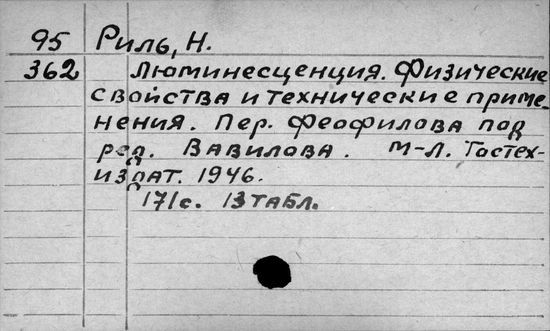 95 Риль, Н.
362 Люминесценция. Физические
свойства и технические приме-
нения. Пер. Феофилова под
ред. Вавилова. М-Л. Гостех-
издат. 1946.
171с. 13 табл.